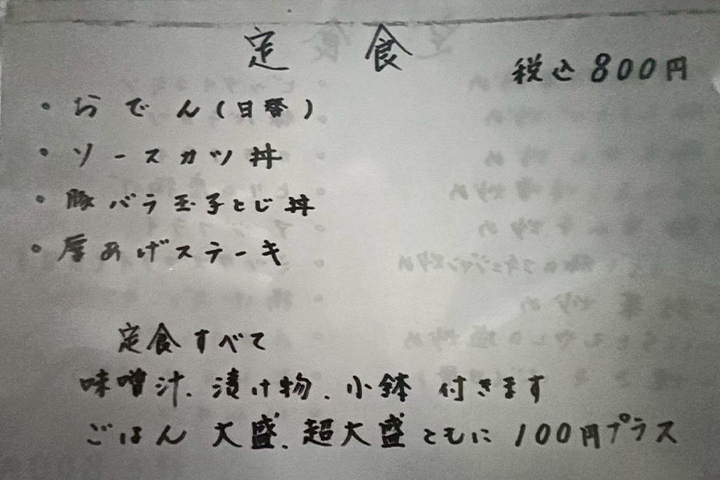 定食
税込800円
・おでん(日替)
・ソースカツ丼
・豚バラ玉子とじ丼
・厚あげステーキ
定食すべて
味噌汁、漬け物、小鉢 付きます
ごはん 大盛、超大盛ともに 100円プラス